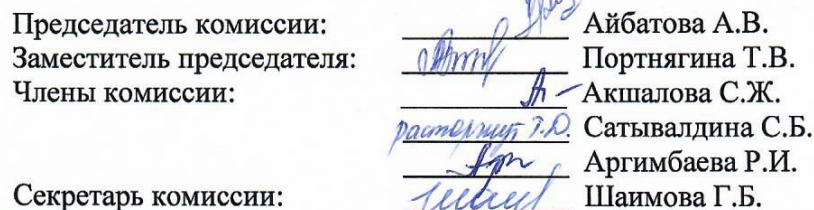 Председатель комиссии: Айбатова А.В.
Заместитель председателя: Портнягина Т.В.
Члены комиссии: Акшалова С.Ж.
расторгнут Т.Д. Сатывалдина С.Б.
Аргимбаева Р.И.
Секретарь комиссии: Шаимова Г.Б.